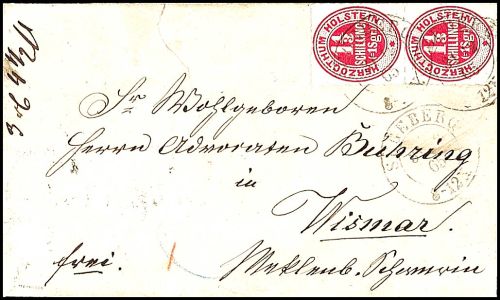 HERZOGTHUM HOLSTEIN
1⅓
SCHILLING
=1Sgr.
HERZOGTHUM HOLSTEIN
1⅓
SCHILLING
=1Sgr.
Sr Wohlgeboren
Herrn Advocaten Bühring
in
Wismar.
Meklenb. Schwerin
frei.